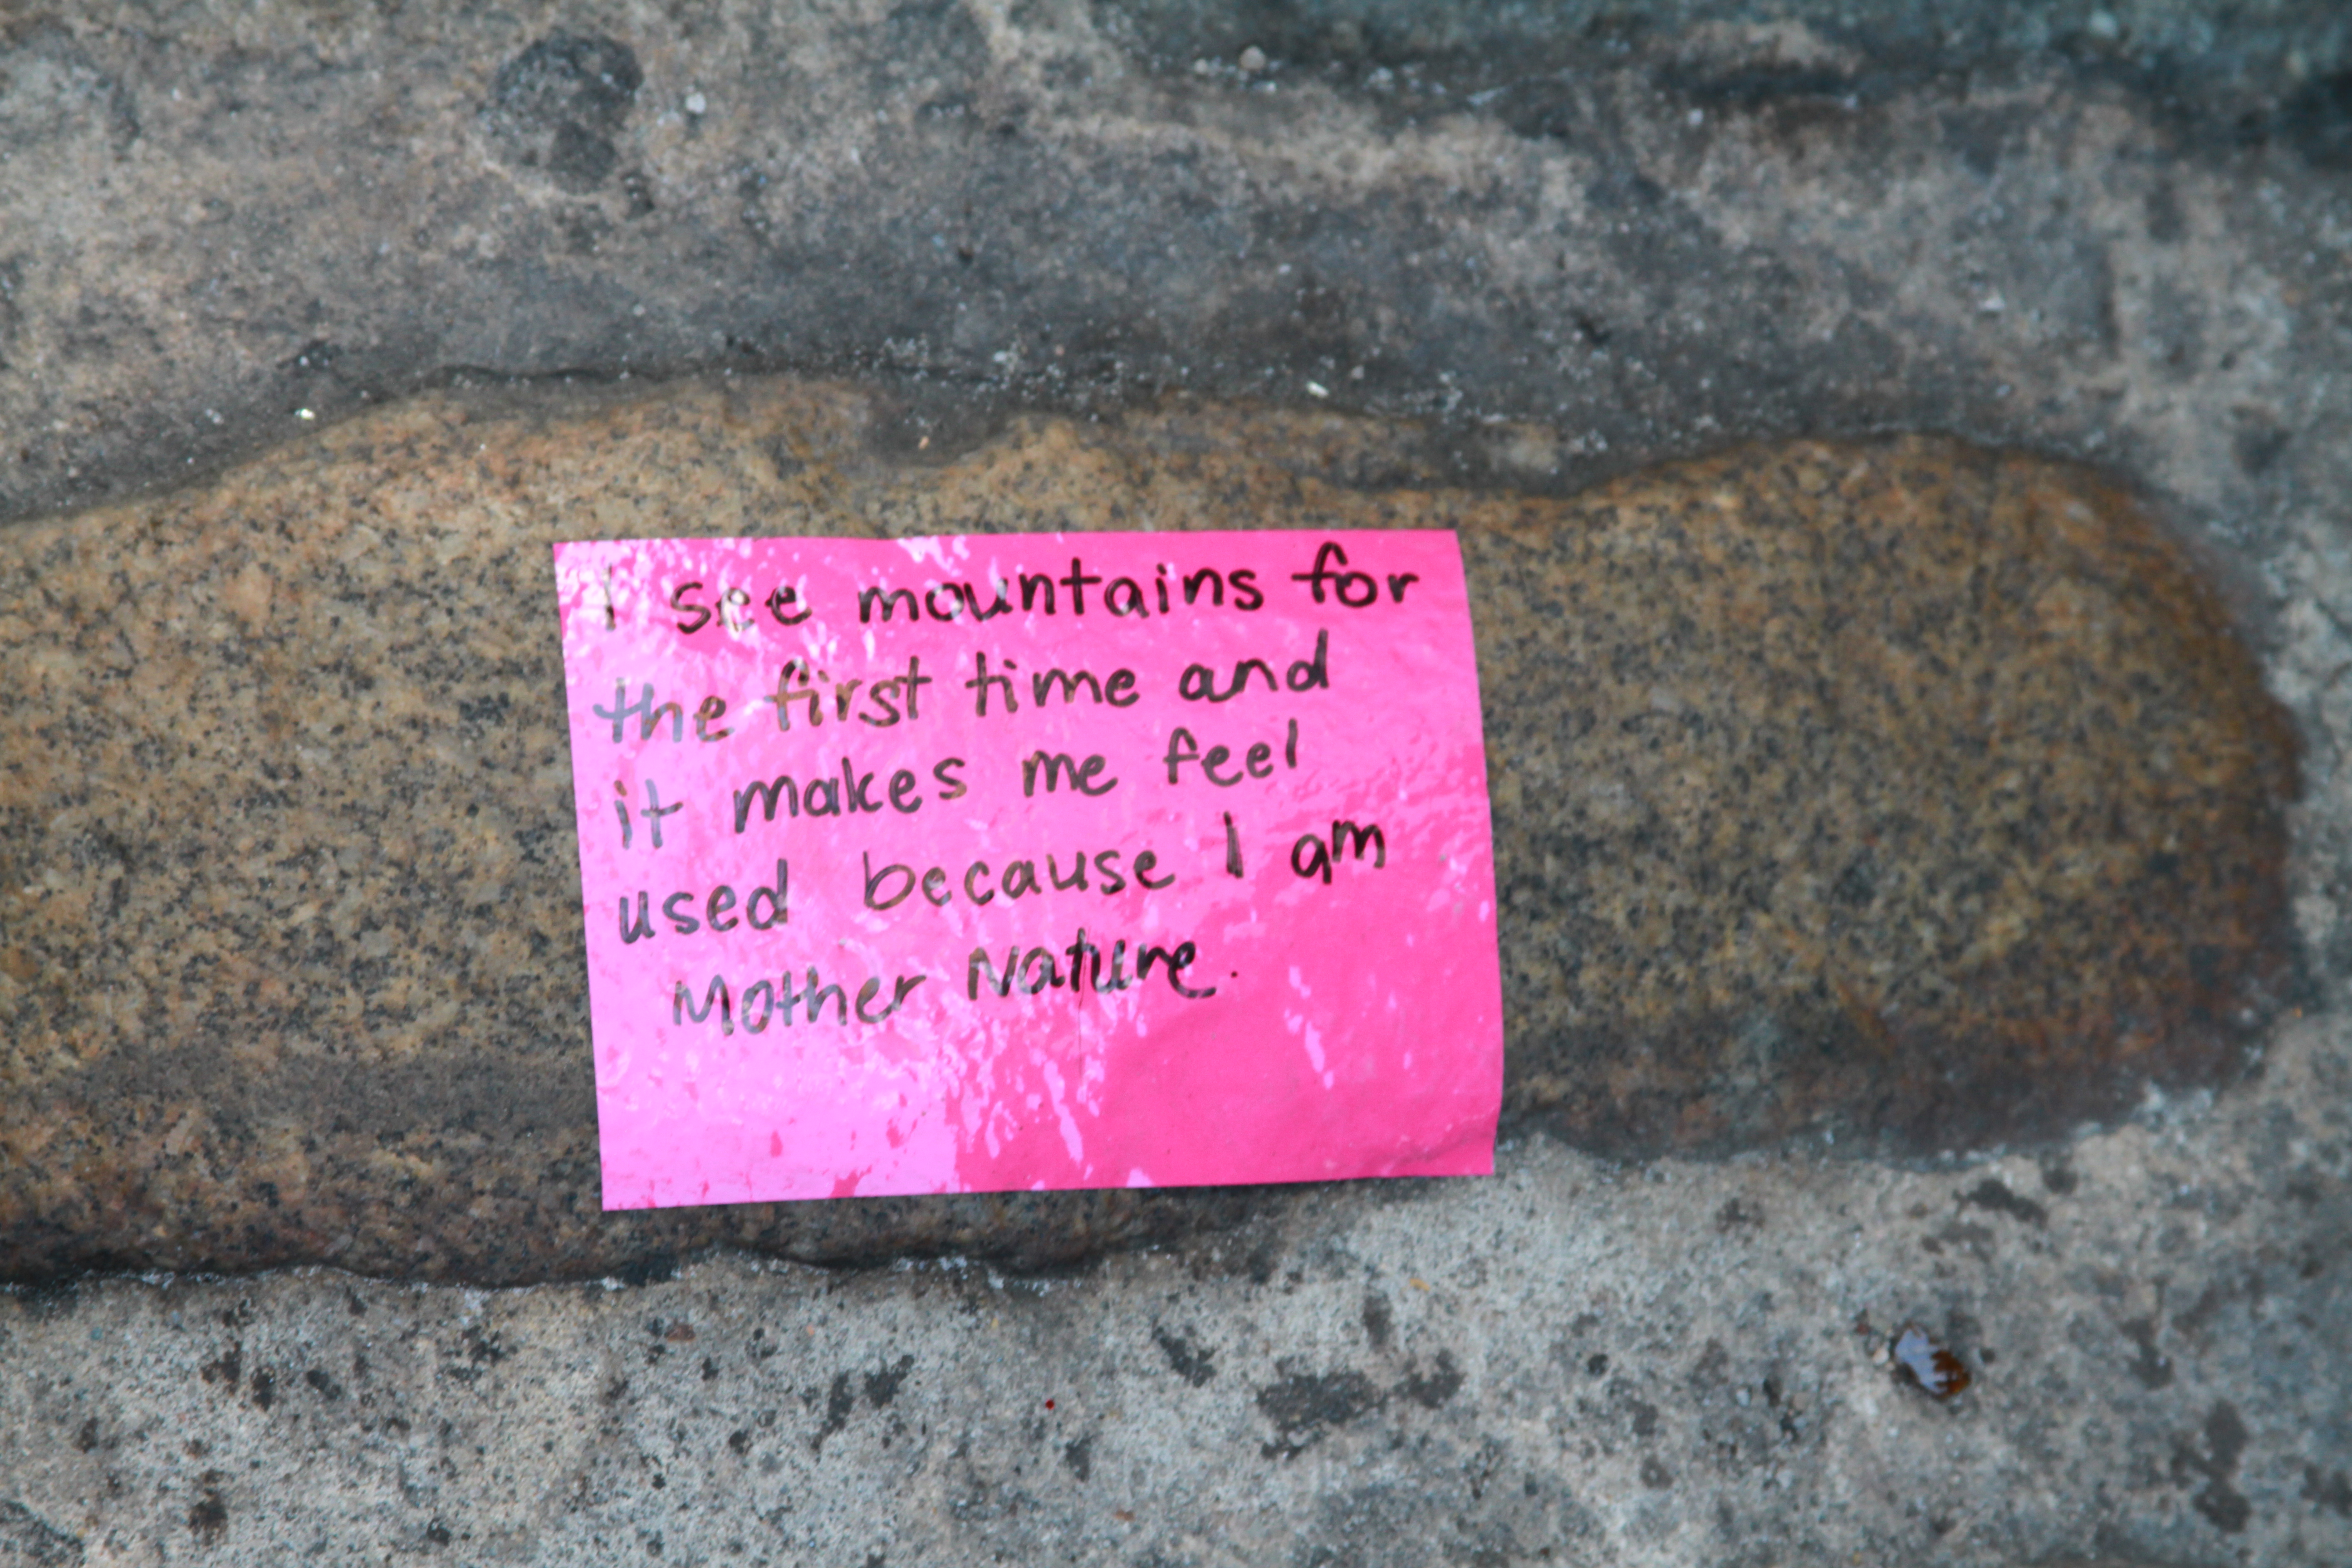 I see mountains for
the first time and
it makes me feel
used because I am
Mother Nature.